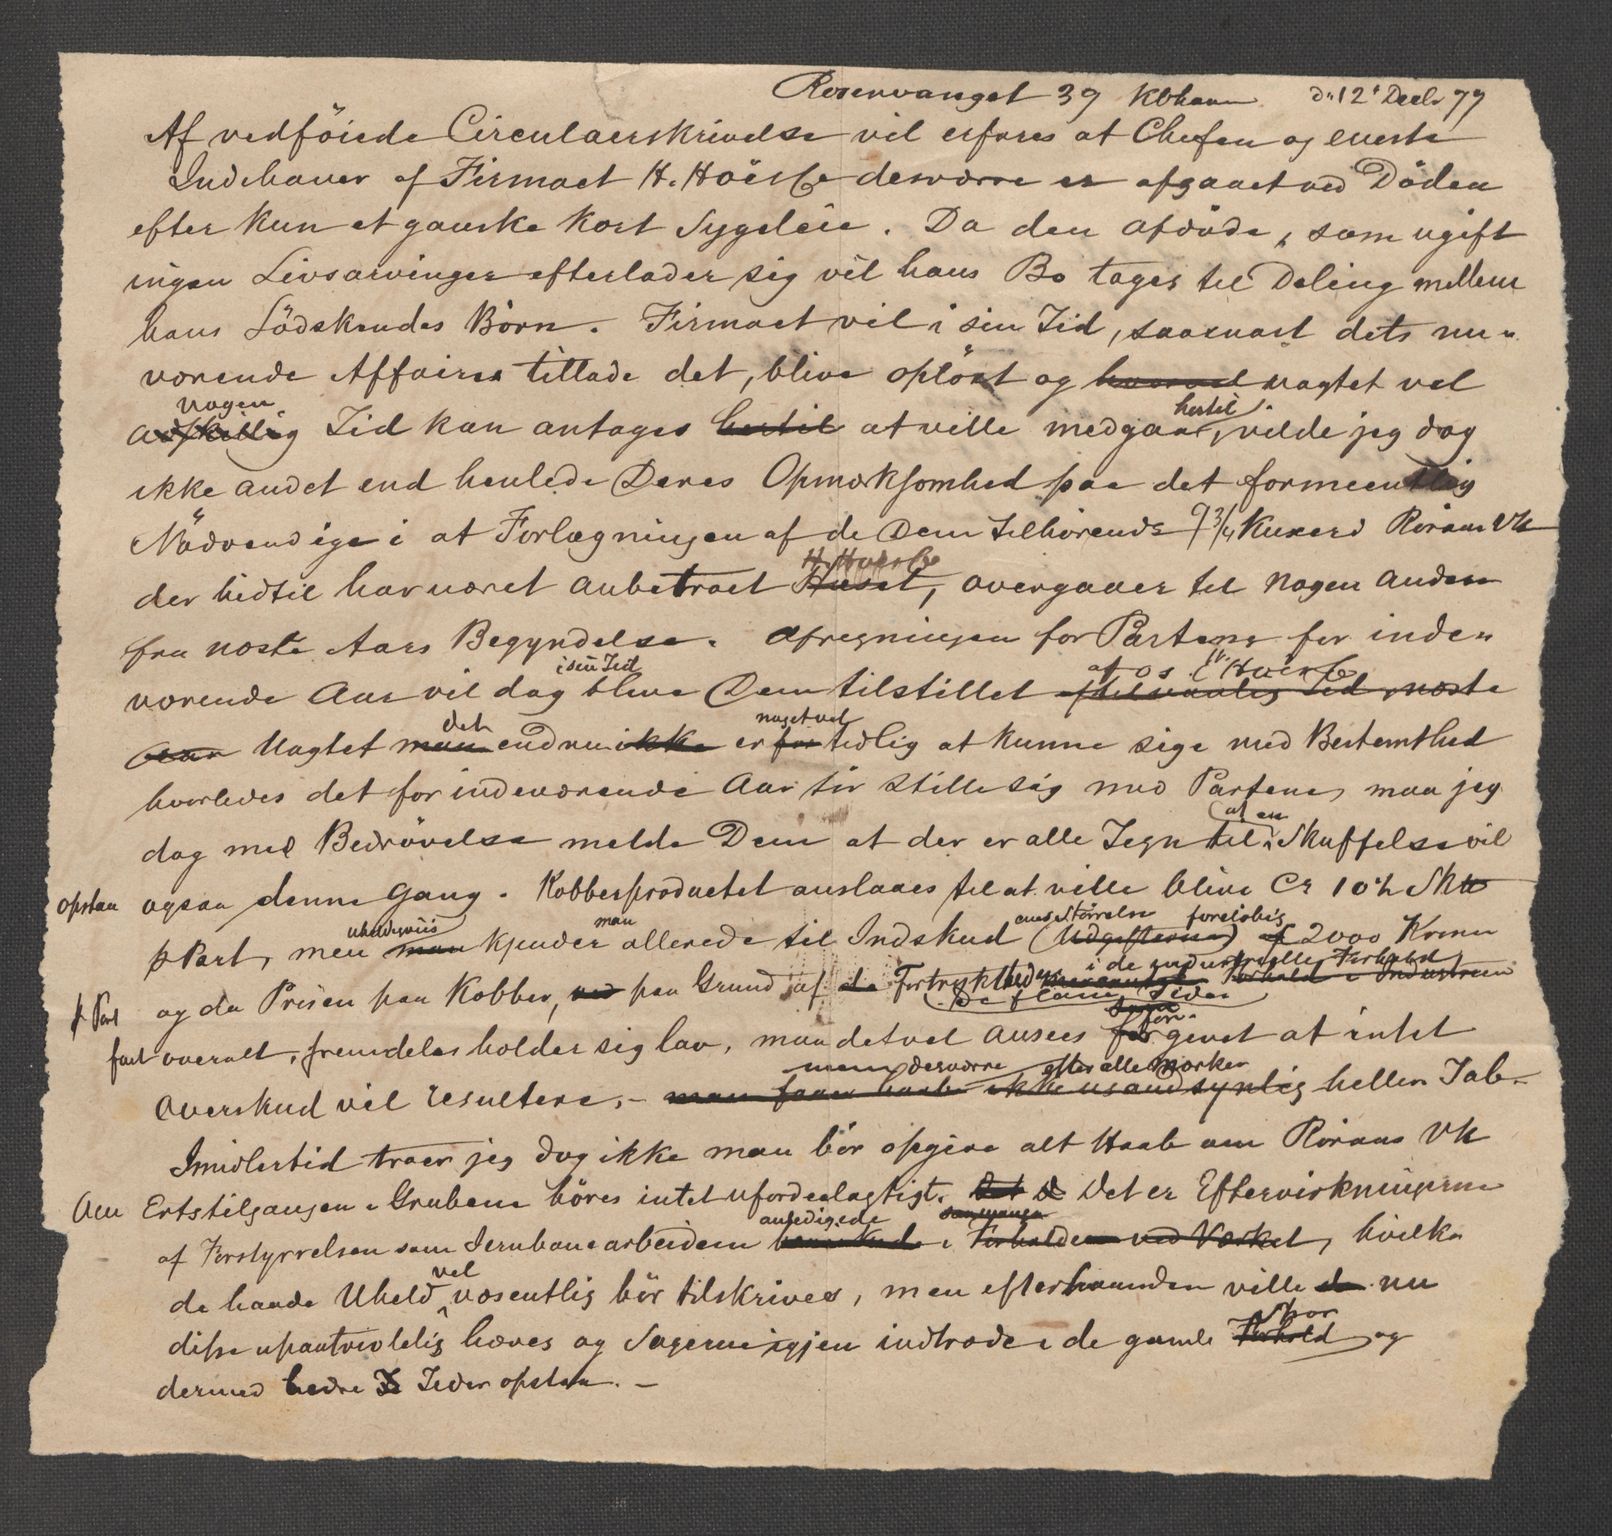 Rosenvanget 39 Kbhavn dn 12t Decbr 77
Af vedföiede Circulairskrivelse vil erfares at Chefen og eneste
Indehaver af Firmaet H. Höe & Co desværre er afgaaet ved Döden
efter kun et ganske kort Sygeleie. Da den afdöde, som ugift
ingen Livsarvinger efterlader sig vil hans Bo tages til Deling mellem
hans Södskendes Börn. Firmaet vil i sin Tid, saasnart dets nu-
værende Affairer tillade det, blive oplöst og hvorvel uagtet vel
nogen
adskillig Tid kan antages hertil at ville medgaae, vilde jeg dog
hertil
ikke andet end henlede Deres Opmærksomhed paa det formeentlig
Nödvendige i at Forlægningen af de Dem tilhörende 9 3/4 Kuxer i Röraas Vk
H. Höe & Co
der hidtil har været anbetroet Huset, overgaaer til nogen anden
fra næste Aars Begyndelse. Afregningen for Partene for inde-
i sin Tid af os
værende Aar vil dog blive Dem tilstillet til vanlig Tid næste
det noget vel
Aar Uagtet man endnu ikke er for tidlig at kunne sige med Bestemthed
hvorledes det for indeværende Aar tör stille sig med Partene, maa jeg
at en
dog med Bedrövelse melde Dem at der er alle Tegn til Skuffelse vil
opstaa ogsaa denne Gang. Kobberproductet anslaaes til at ville blive Ca 10 1/2
uheldigviis man foreløbig
p Part, men man kjender allerede til Indskud (Udgifterne) af 2000 Kroner
i de industrielle Forhold
p Part og da Prisen paa Kobber, ved paa Grund af de Forhold i Industrien
fast overalt, fremdeles holder sig lav, maa det vel ansees for givet at intet
men desværre efter alle Mærker
Overskud vil resultere, - man faaer haabe ikke usandsynlig heller Tab.
Imidlertid troer jeg dog ikke man bör opgive alt Haab om Röraas Vk
Om Ertstilgangen i Grubene höres intet ufordeelagtigt. Det D Det er Eftervirkningerne
saa mange
af Forstyrrelsen som Jernbanearbeidem i Forholdene ved Værket, hvilke
vel
de havde Uheld væsentlig bör tilskrives, men efterhaanden ville de nu
Spor
disse upaatvivlelig hæves og Sagerne igjen indtræde i de gamle Forhold og
dermed bedre T Tider opstaa. -